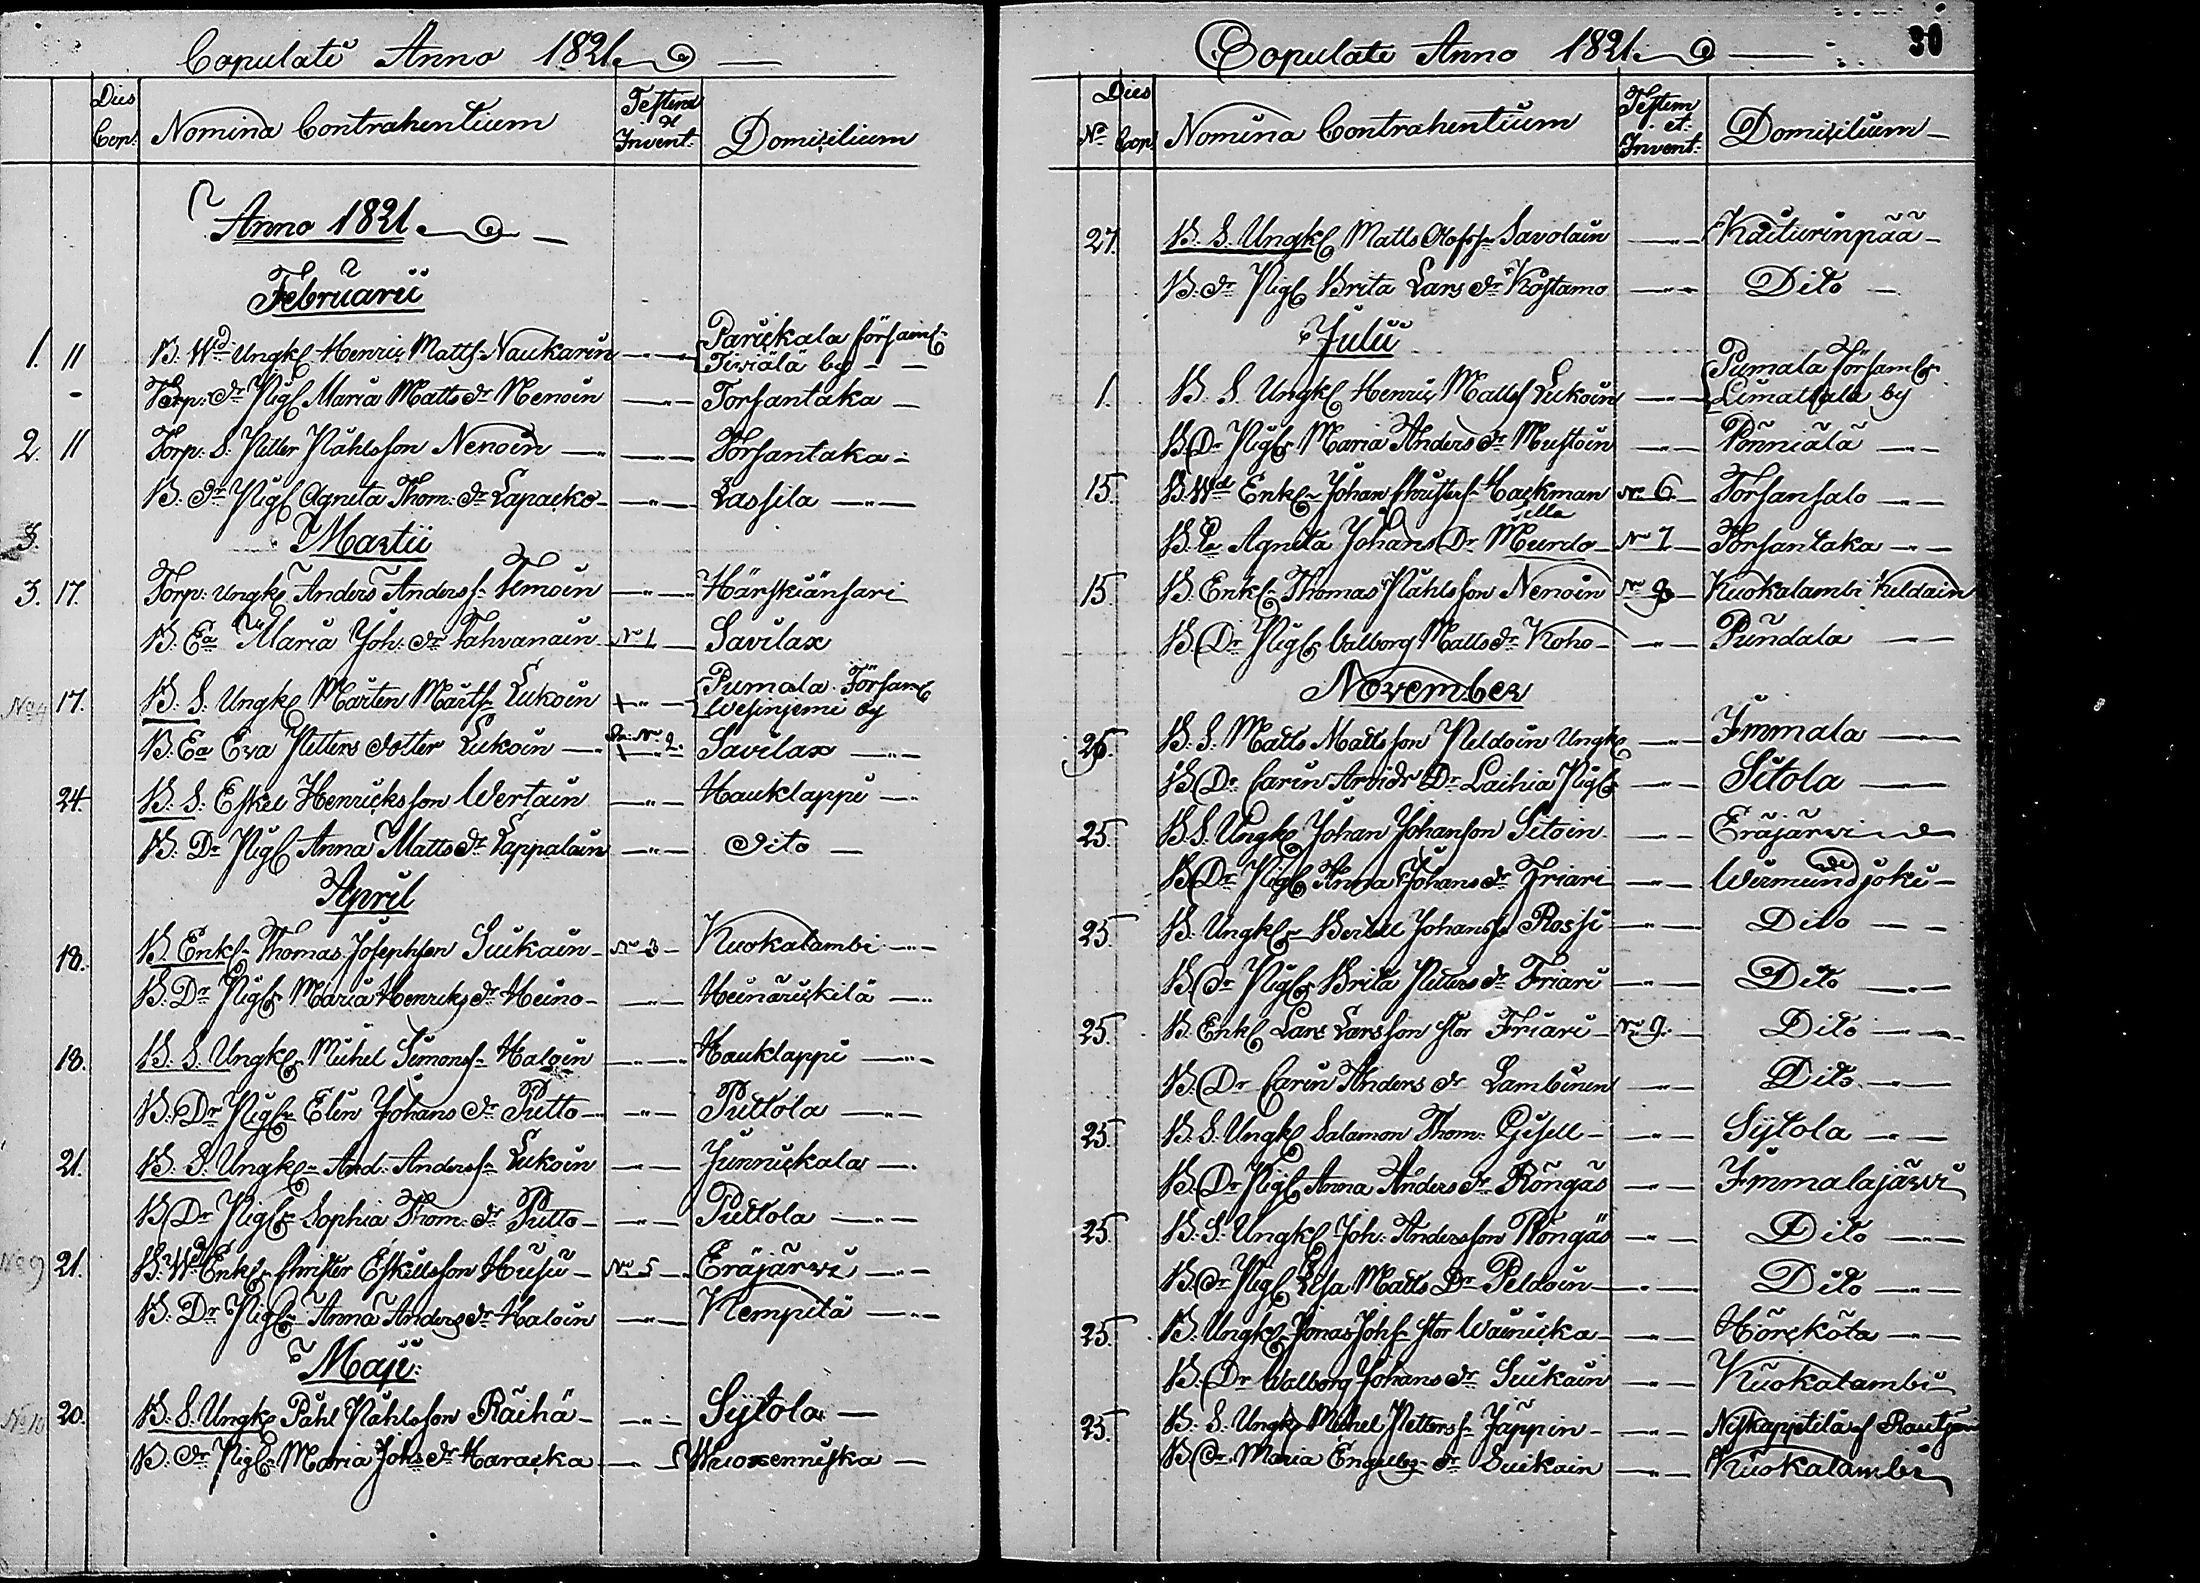 Copulati Anno 1821.
Dies Cop. Nomina Contrahentium Testem et Invent: Domicilium
Anno 1821.
Februarii
1. 11 B. Wd Ungkl Henric Mattss. Naukarin Parickala församl: Tiviälä by
Torp: dr Pigl Maria Matts dr Nenoin Torsantaka
2. 11 Torp: S. Petter Påhlsson Nenoin Torsantaka
B. dr Pigl Agneta Thom: dr Lapacko Lassila
3.
Martii
3. 17. Torp: Ungkl Anders Anderss. Temoin Härskiänsari
B. Ea Maria Joh: dr Tahvanain No 1 Savilax
No 4 17. B. S. Ungkl Mårten Mårtss. Lukoin Pumala Församl Wesinjemi by
B. Ea Eva Petters dotter Lukoin No 2. Savilax
24. B. S. Eskel Henricksson Wertain Hauklappi
B. Dr Pigl Anna Matts dr Lappalain dito
April
18. B. Enkl. Thomas Josephson Suikain No 3 Kuokalambi
B. Dr Pigl Maria Henriks dr Heino Heinärickilä
18. B. S. Ungkl. Michel Simonss. Haloin Hauklappi
B. Dr Pigl. Elin Johans dr Putto Puttola
21. B. S. Ungkl. And. Anderss. Lukoin Junnickala
B. Dr Pigl Sophia Thom: dr Putto Puttola
No 9 21. B. Wd Enkl. Christer Eskillsson Husu No 5 Eräjärvi
B. Dr Pigl Anna Anders dr Haloin Kempilä
Maji:
No 10 20. B. S. Ungkl Påhl Påhlsson Räihä Sijtola
B. dr Pigl. Maria Johs dr Haracka Wuoxenniska
Copulati Anno 1821. 30
No Dies Cop. Nomina Contrahentium Testem et: Invent: Domicilium
27. B. S. Ungkl Matts Olofss. Savolain Käiturinpää
B. dr Pigl Brita Lars dr Kostamo Dito
Julii
1. B. S. Ungkl Henric Mattss Lukoin Pumala Församl. Limattala by
B. Dr Pigl Maria Anders dr Mustoin Pönniälä
15. B. Wd Enkl. Johan Christers. Hackman No 6. Torsansalo
B. Ea Agneta Johans Dr Murdo No 7 Torsantaka
15. B. Enkl. Thomas Påhlsson Nenoin No 8 Kuokalambi
B. Dr Pigl Valborg Matts dr Koho Pundala
November
25. B. S. Matts Mattsson Peldoin Ungkl Immala
B. Dr Carin Arvids Dr Laihia Pigl Sitola
25. B. S. Ungkl Johan Johanson Sitoin Eräjärvi
B. Dr Pigl Anna Johans dr Friari Wirmundjoki
25. B. Ungkl. Bertill Johanss Rossi Dito
B. dr Pigl Brita Petters dr Friari Dito
25. B. Enkl Lars Larsson stor Friari No 9. Dito
B. Dr Carin Anders dr Lambinen Dito
25. B. S. Ungkl Salamon Thom: Gesell Sijtola
B. Dr Pigl Anna Anders dr Röngäs Immalajärvi
25. B. S. Ungkl Joh: Andersson Röngäs Dito
B. dr Pigl Lisa Matts Dr Peldoin Dito
25. B. Ungkl. Jonas Johs. stor Wainicka Höröckölä
B. Dr Walborg Johans dr Suikain Kuokalambi
25. B. S. Ungkl Michel Petterss. Jäppin Niskapjetilä af Rautjärvi
B. Dr Maria Engelbr: dr Suikain Kuokalambi